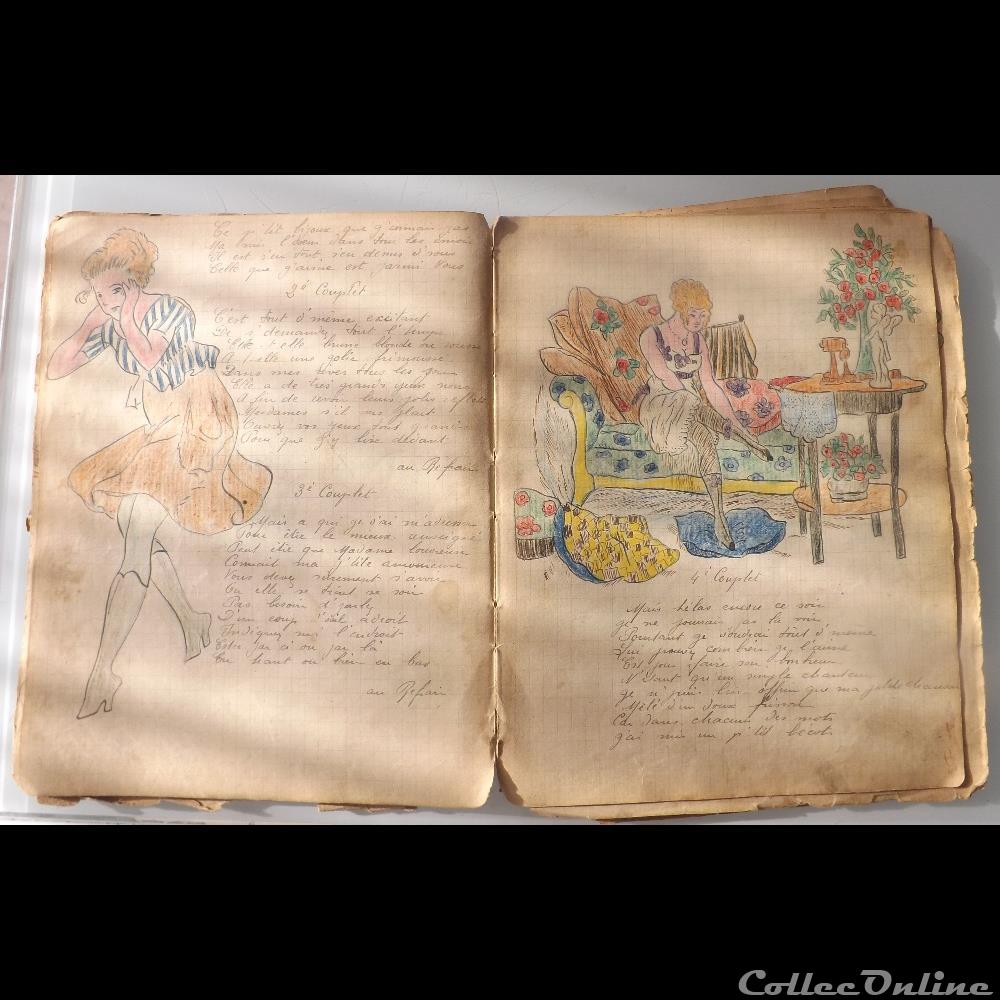 Ce p'tit bijoux que j'connais pas
Ma mis l'coeur dans tous les émois
Il est s'en tout, s'en demis d'sous
Celle que j'aime est parmi vous
2e Couplet
C'est tout d'même excitant
De s'demander tout l'temps
Elle t'elle brune blonde ou rousse
A t'elle une jolie frimousse
Dans mes rêves tous les
Elle a de très grands yeux noirs
Afin de revoir leurs jolis reflets
Mesdames s'il vous plait
Ouvrez vos yeux tout grands
Pour que j'y lise dedant
au Refrain
3e Couplet
Mais a qui je vai m'adresser
Pour être le mieux renseigné
Peut être que Madame
Connait ma p'tite amoureuse
Vous devez surement s'avoir
Ou elle se tient se soir
Pas besoin d'parler
D'un coup d'oeil adroit
Indiquez moi l'endroit
Estce par ci ou par la
En haut ou bien en bas
au Refrain
4e Couplet
Mais hélas encore ce soir
je ne pourrais pas la voir
Pourtant je voudrai tout d'même
Lui prouver combien je l'aime
Est pour faire son bonheur
N'étant qu'un simple chanteur
je n'puis lui offrir que ma petite chanson
Mélé d'un doux frisson
Car dans chacun des mots
j'ai mis un p'tit bécot
CollecOnline